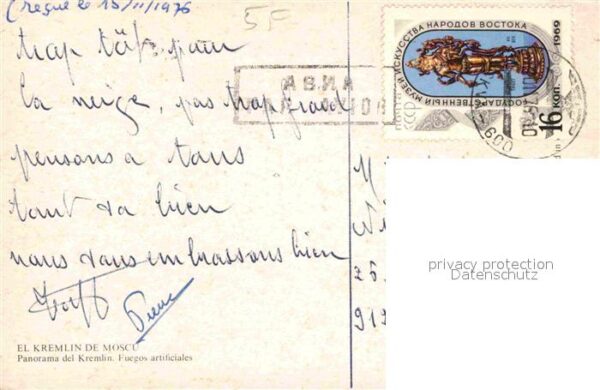 (reçue le 15/11/1976
5F
la neige, pas trop froid
pensons à tous
tout va bien
nous vous embrassons bien
Pierre
EL KREMLIN DE MOSCÚ
Panorama del Kremlin. Fuegos artificiales
ГОСУДАРСТВЕННЫЙ МУЗЕЙ ИСКУССТВА НАРОДОВ ВОСТОКА
1969
16 коп.
ПОЧТА СССР
АВИА
privacy protection
Datenschutz